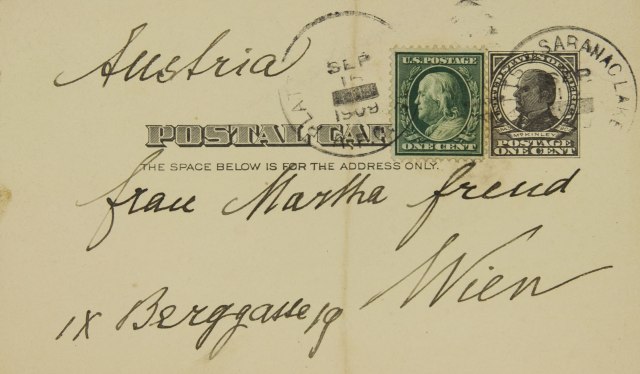 Austria
SEP
16
1909
SARANAC LAKE
U.S. POSTAGE
ONE CENT
UNITED STATES OF AMERICA
McKINLEY
POSTAGE
ONE CENT
POSTAL CA
THE SPACE BELOW IS FOR THE ADDRESS ONLY.
frau Martha freud
Wien
IX Berggasse 19